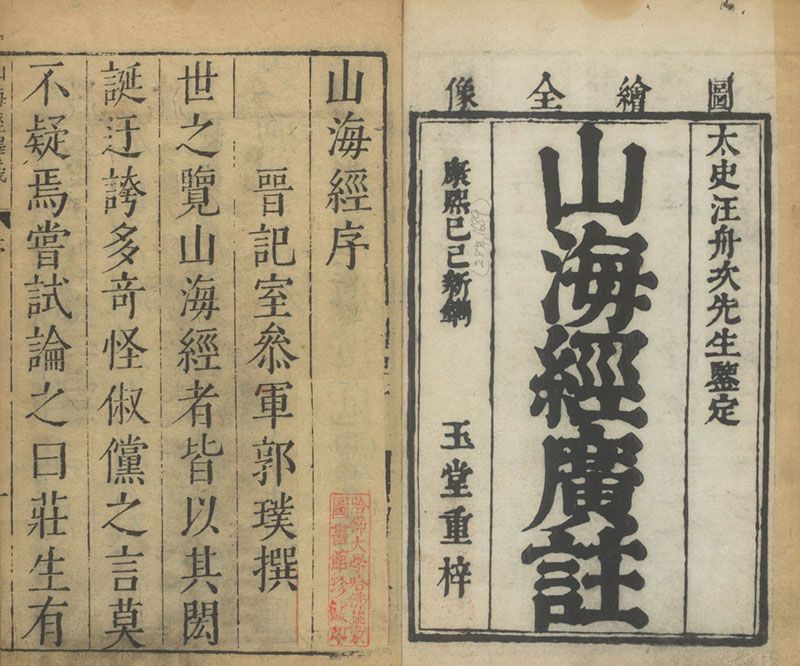 圖繪全像
太史汪舟次先生鑒定
山海經廣註
康熙己巳新鐫
(28年,1689)
玉堂重梓
山海經序
晉記室叅軍郭璞撰
世之覽山海經者皆以其閎
誕迂誇多竒怪俶儻之言莫
不疑焉嘗試論之曰莊生有
哈佛大學哈佛燕京
圖書館珍藏印